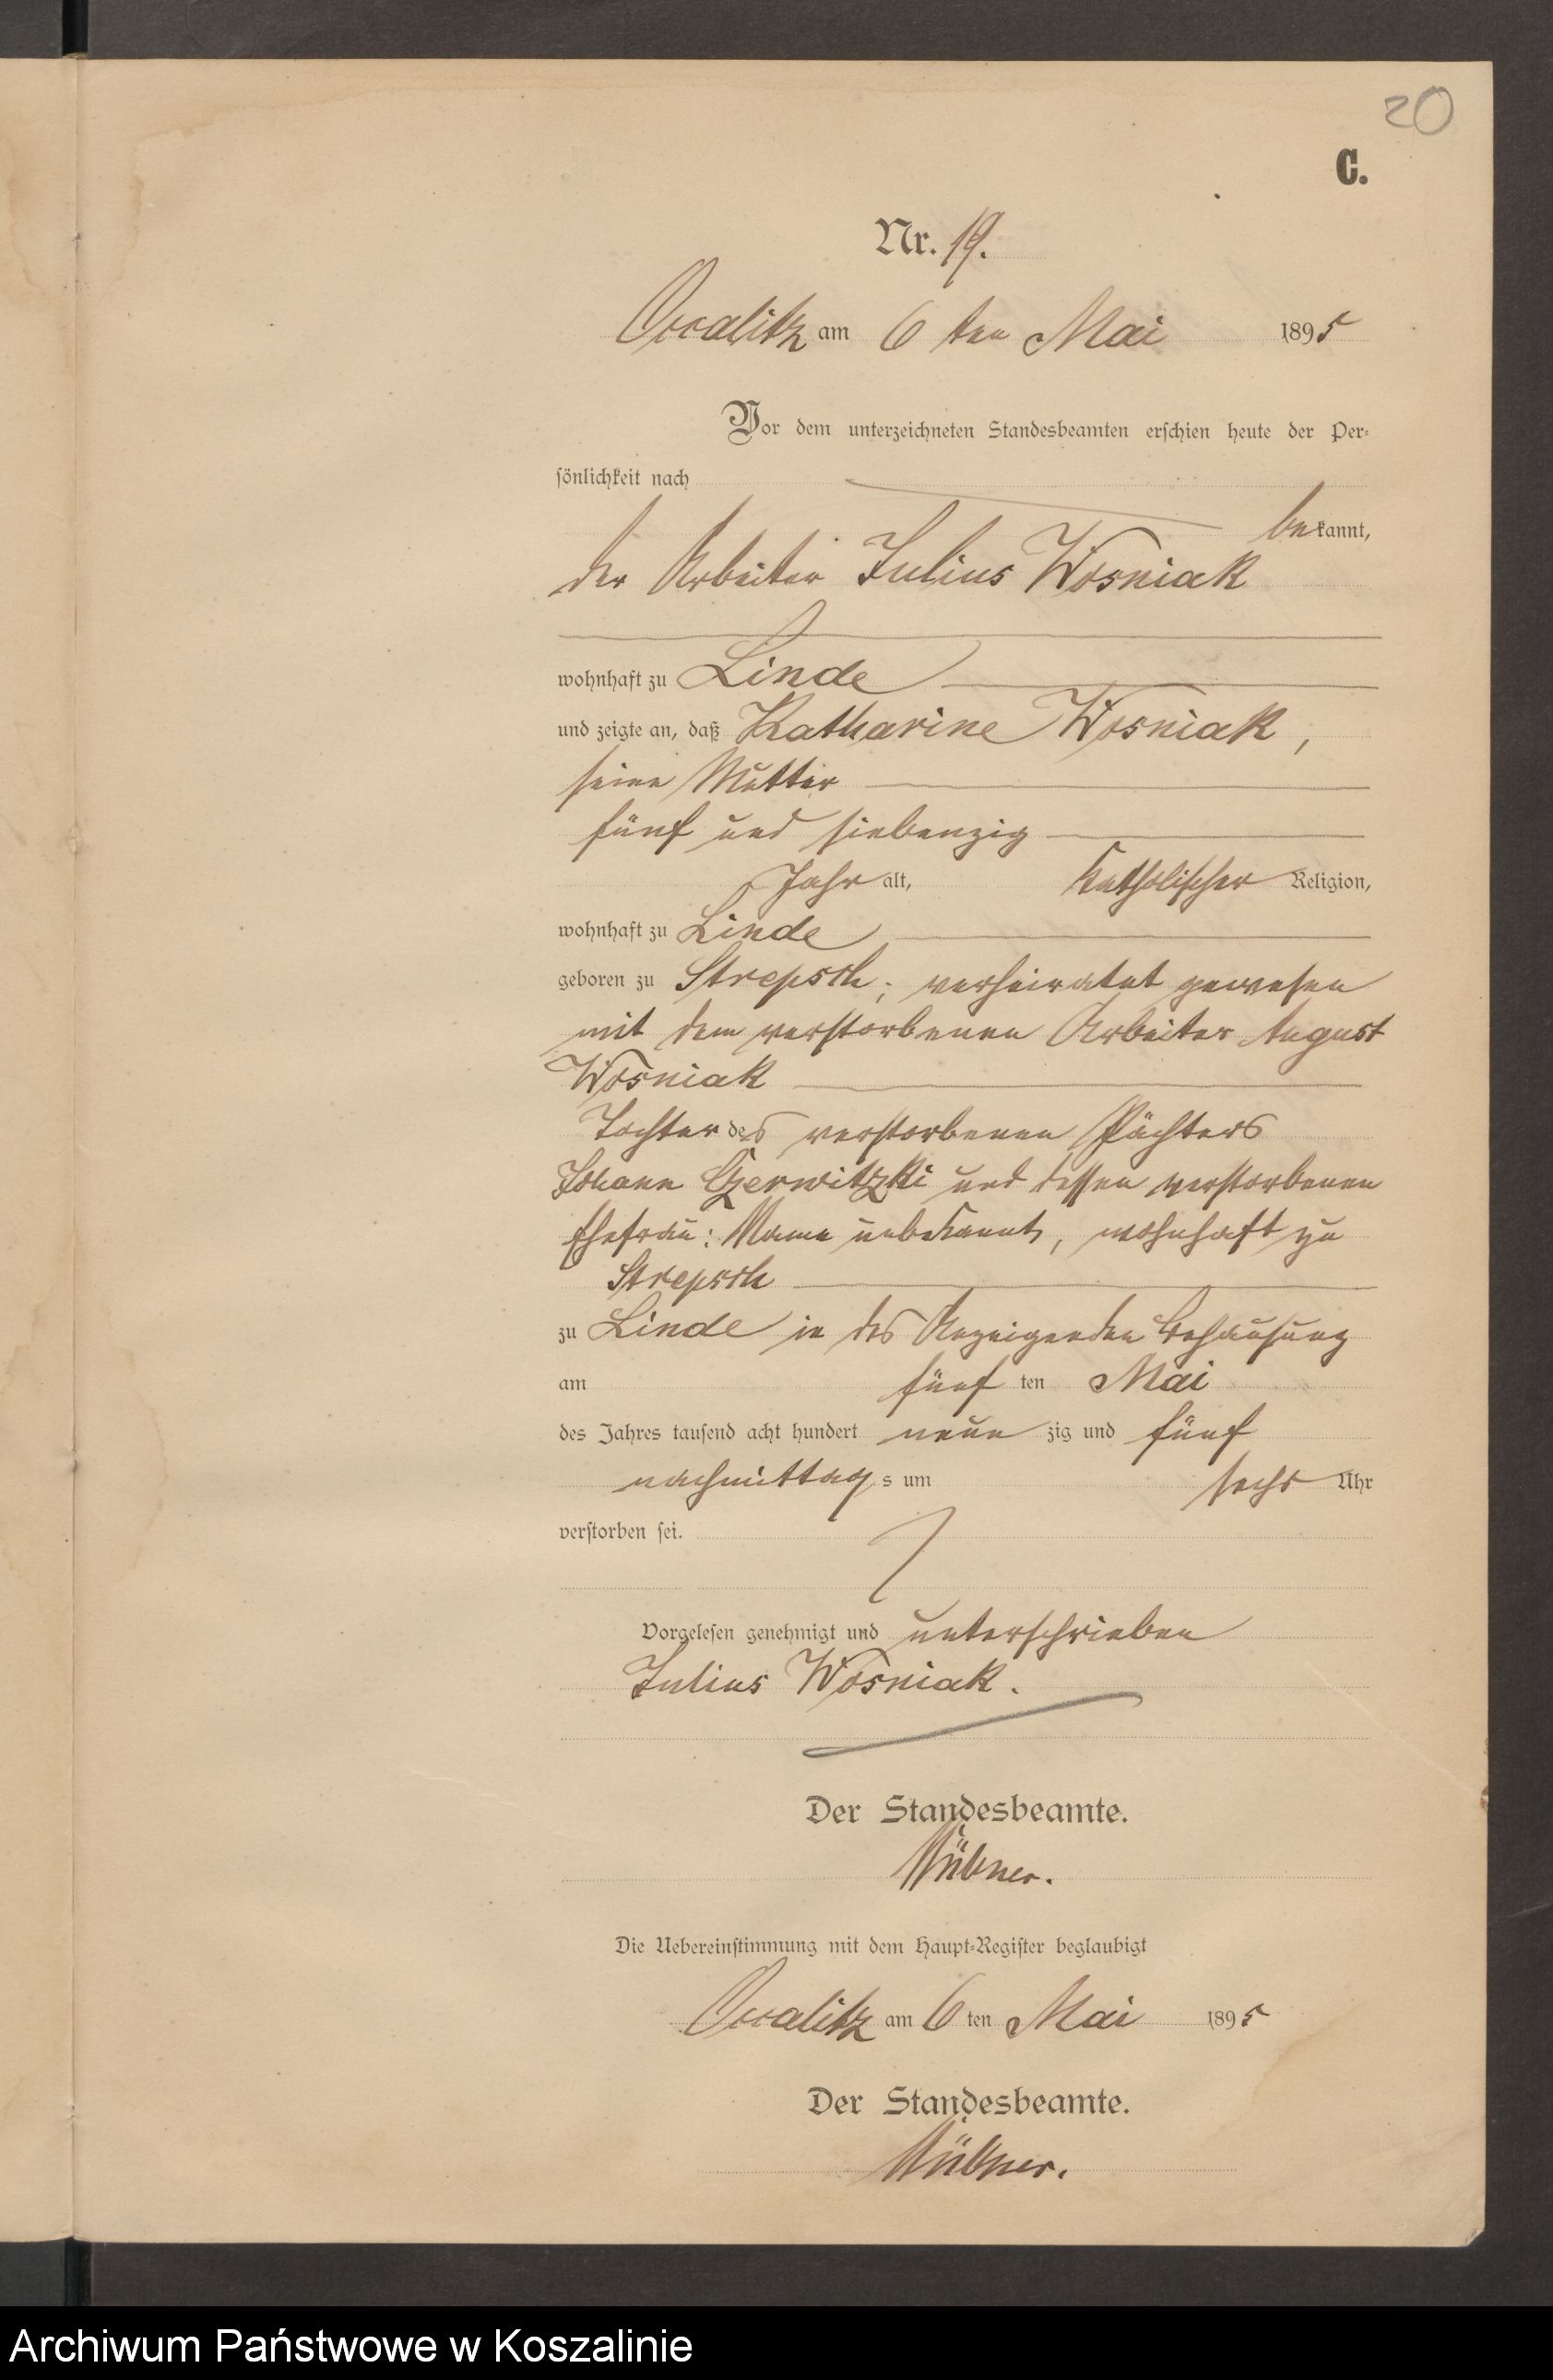 20
C.
Nr. 19.
Occalitz am 6 ten Mai 1895
Vor dem unterzeichneten Standesbeamten erschien heute der Per-
sönlichkeit nach
bekannt,
der Arbeiter Julius Wosniak
wohnhaft zu Linde
und zeigte an, daß Katharine Wosniak,
seine Mutter
fünf und siebenzig
Jahr alt, katholischer Religion,
wohnhaft zu Linde
geboren zu Strepsch; verheiratet gewesen
mit dem verstorbenen Arbeiter August
Wosniak
Tochter des verstorbenen Pächters
Johann Czerwitzki und dessen verstorbenen
Ehefrau: Name unbekannt, wohnhaft zu
Strepsch
zu Linde in des Anzeigenden Behausung
am fünf ten Mai
des Jahres tausend acht hundert neun zig und fünf
nachmittags um sechs Uhr
verstorben sei.
Vorgelesen genehmigt und unterschrieben
Julius Wosniak.
Der Standesbeamte.
Die Uebereinstimmung mit dem Haupt-Register beglaubigt
Occalitz am 6 ten Mai 1895
Der Standesbeamte.
Archiwum Państwowe w Koszalinie